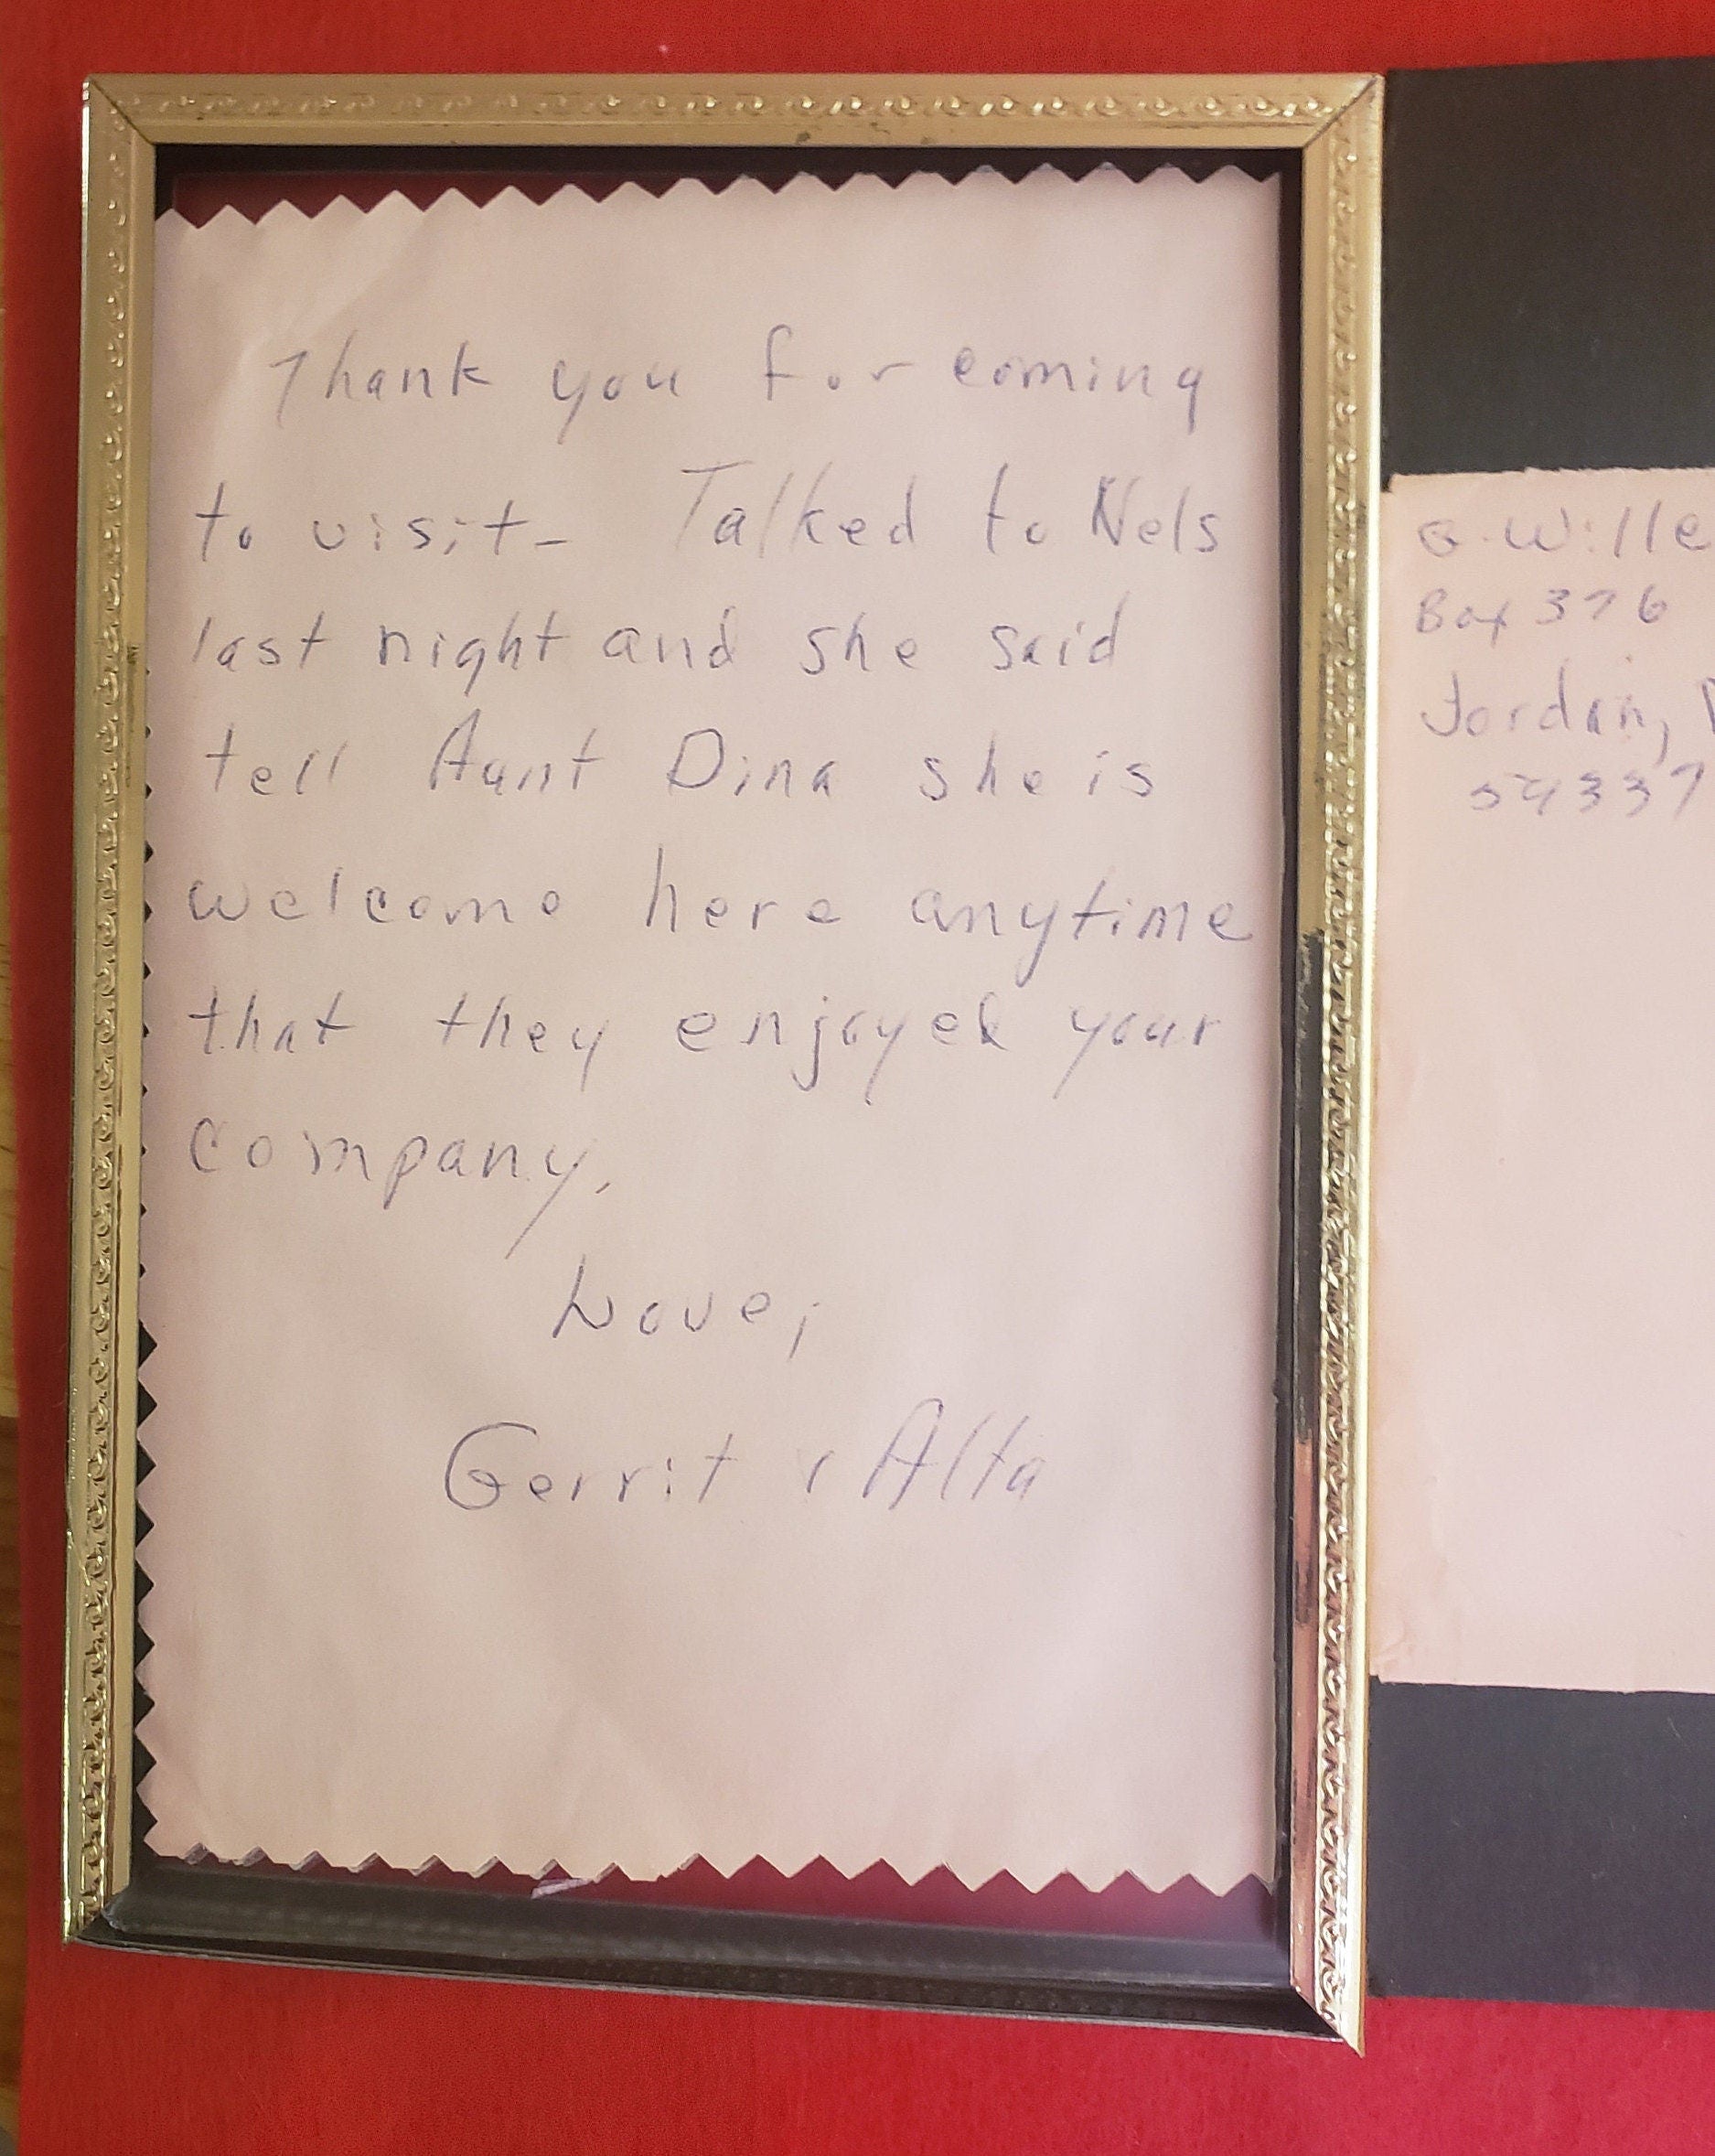 Thank you for coming
to visit- Talked to Nels
last night and she said
tell Aunt Dina she is
welcome here anytime
that they enjoyed your
company.
Love,
Gerrit & Alta
G. Wille
Box 376
Jordan,
59337